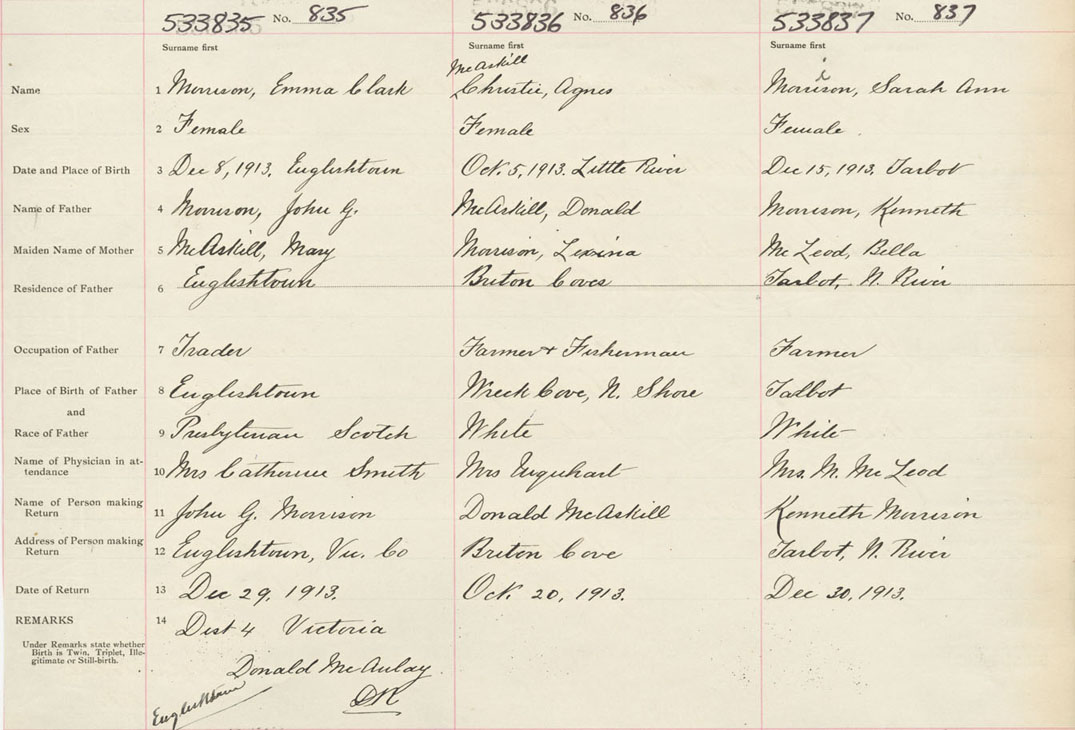 533835 No. 835 533836 No. 836 533837 No. 837
Surname first Surname first Surname first
McAskill i
Name 1 Morrison, Emma Clark Christie, Agnes Morrison, Sarah Ann
Sex 2 Female Female Female
Date and Place of Birth 3 Dec 8, 1913. Englishtown Oct. 5, 1913. Little River Dec 15, 1913. Tarbot
Name of Father 4 Morrison, John G. McAskill, Donald Morrison, Kenneth
Maiden Name of Mother 5 McAskill, Mary Morrison, Lexina McLeod, Bella
Residence of Father 6 Englishtown Briton Coves Tarbot, N. River
Occupation of Father 7 Trader Farmer + Fisherman Farmer
Place of Birth of Father 8 Englishtown Wreck Cove, N. Shore Talbot
and
Race of Father 9 Presbyterian Scotch White White
Name of Physician in at-
tendance 10 Mrs Catherine Smith Mrs Urquhart Mrs. M. McLeod
Name of Person making
Return 11 John G. Morrison Donald McAskill Kenneth Morrison
Address of Person making
Return 12 Englishtown, Vic. Co Briton Cove Tarbot, N. River
Date of Return 13 Dec 29, 1913. Oct. 20, 1913. Dec 30, 1913.
REMARKS 14 Dist 4 Victoria
Under Remarks state whether
Birth is Twin, Triplet, Ille-
gitimate or Still-birth.
Donald McAulay
DR
Englishtown